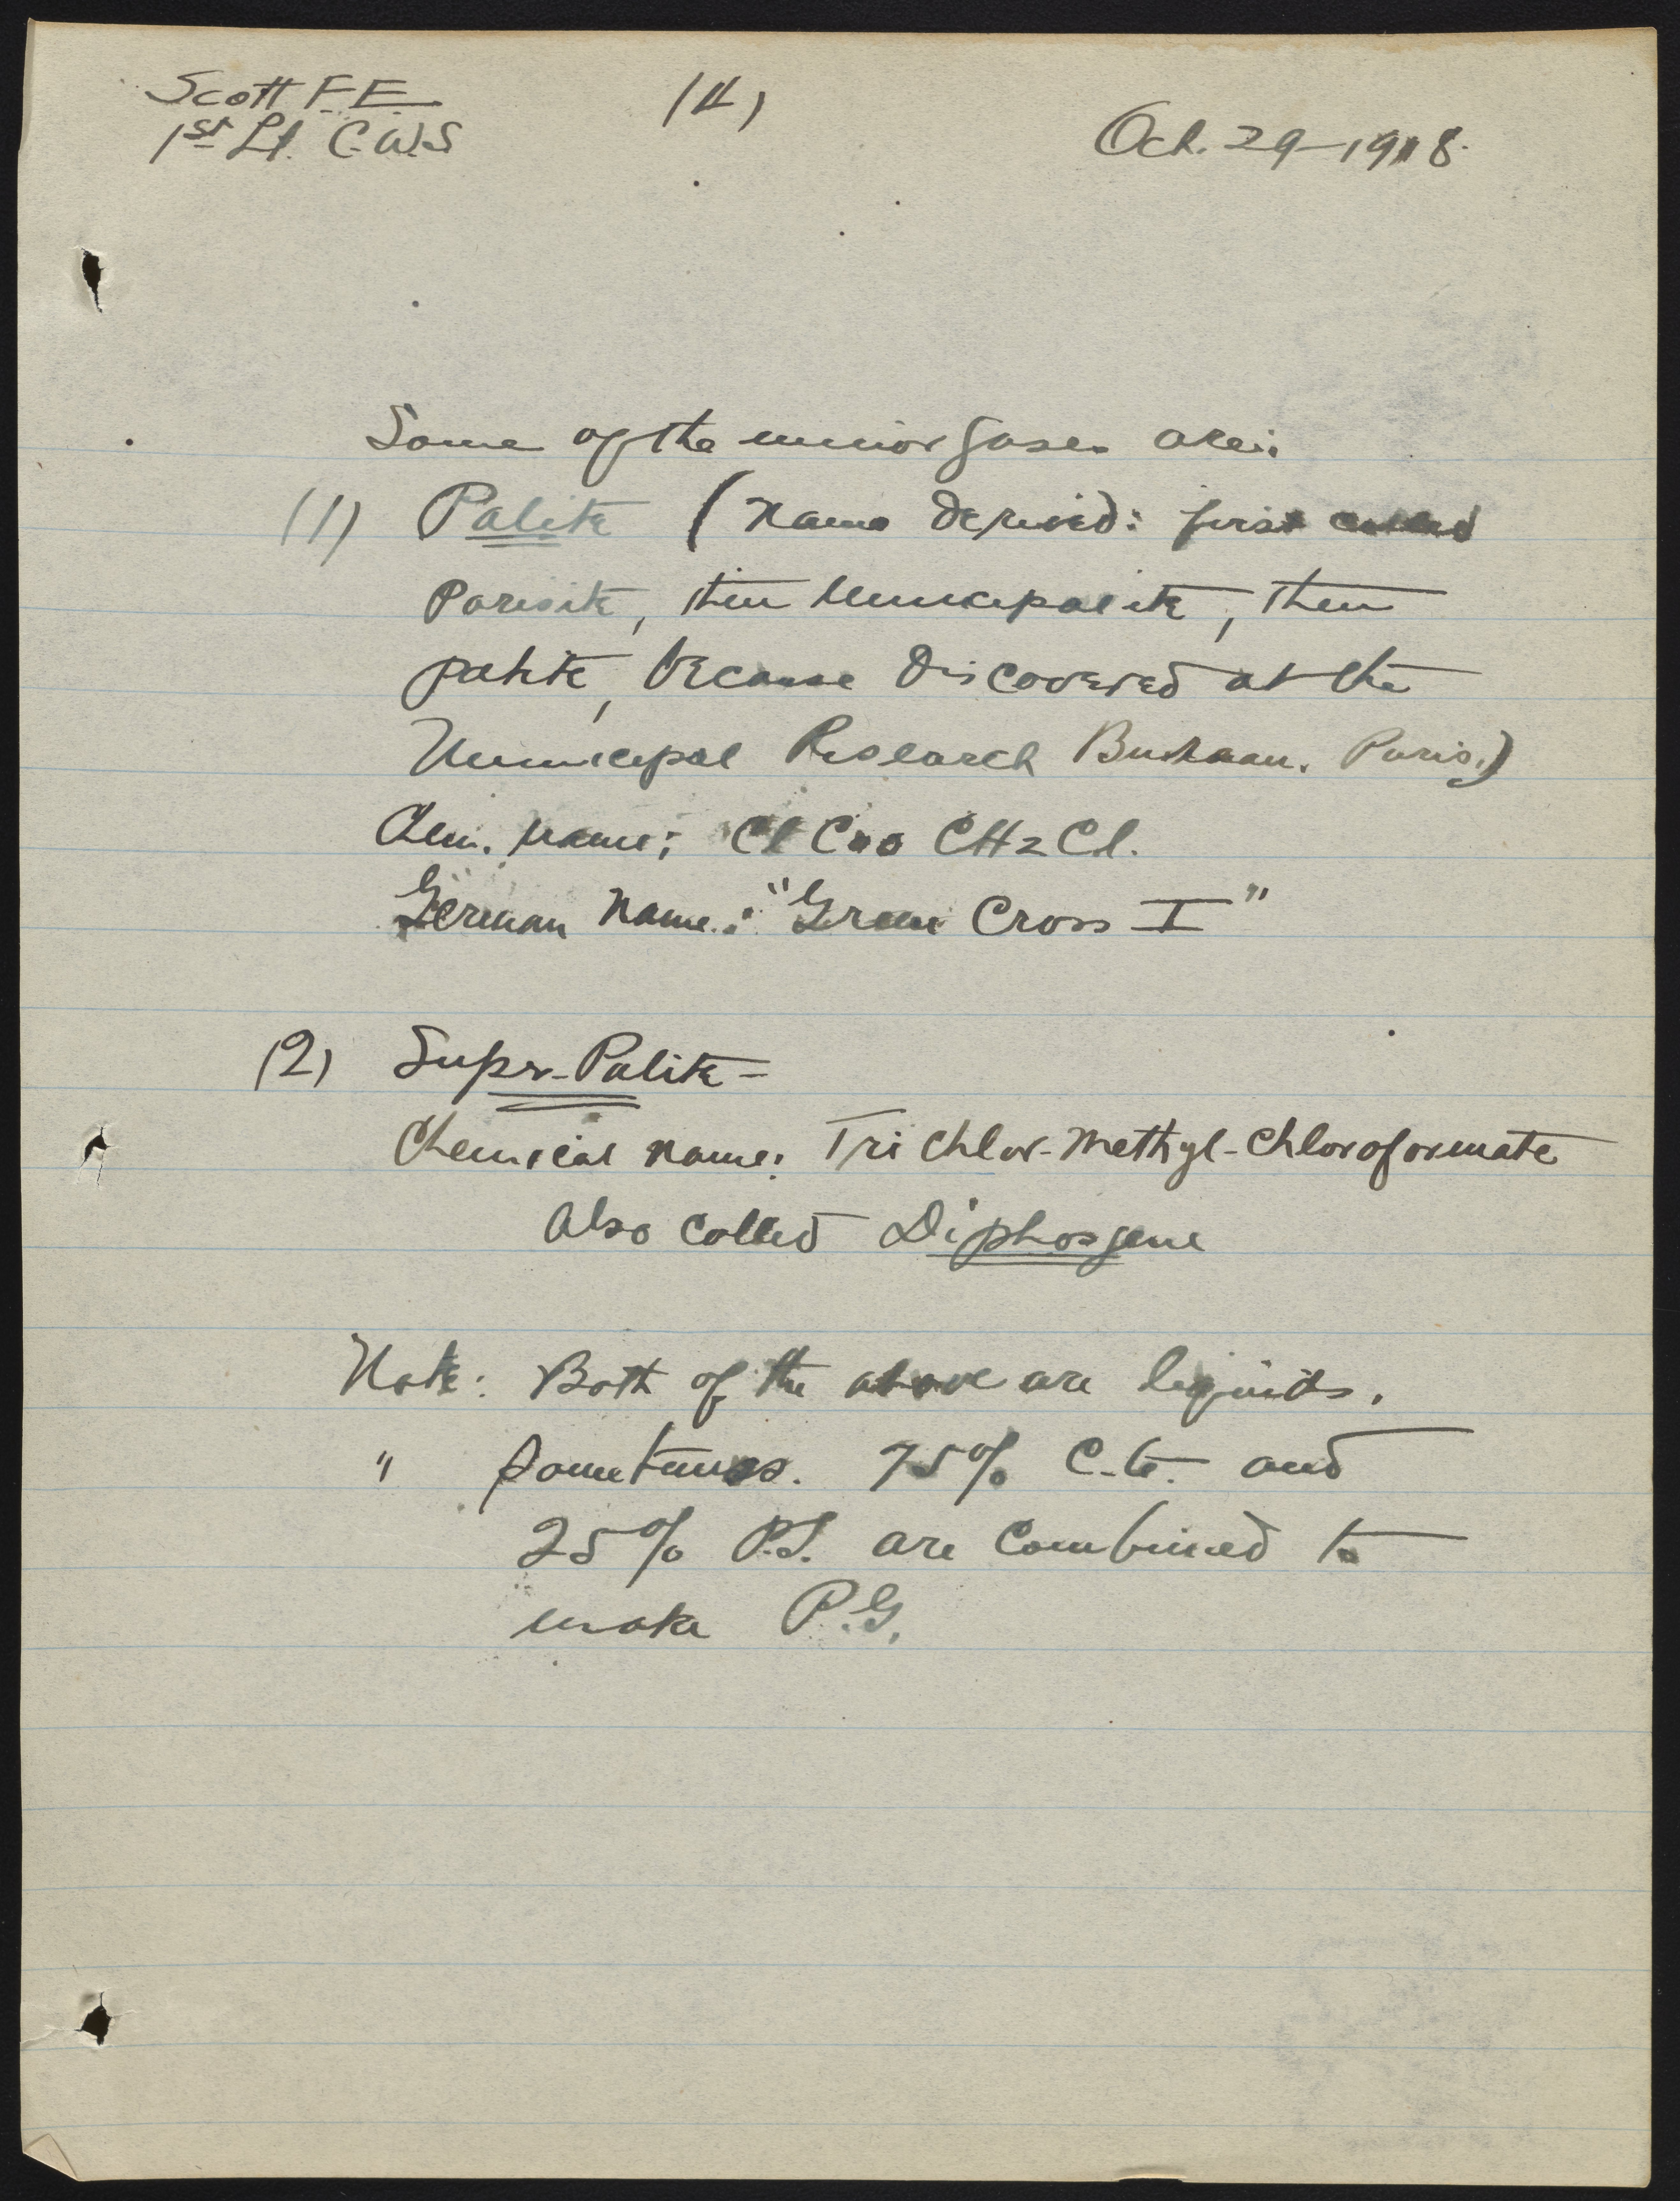 Scott F.E.
1st Lt. C.W.S
(4)
Oct. 29-1918.
Some of the minor gases are:
(1) Palite (Name Derived: first called
Parisite, then Municipalite, then
palite, because Discovered at the
Municipal Research Bureau. Paris.)
Chem. name: Cl Coo CH2 Cl.
German Name: "Green Cross I"
(2) Super-Palite-
Chemical name: Tri Chlor-Methyl-Chloroformate
Also called Diphosgene
Note: Both of the above are liquids.
" Sometimes. 75% C.G. and
25% P.S. are Combined to
make P.G.